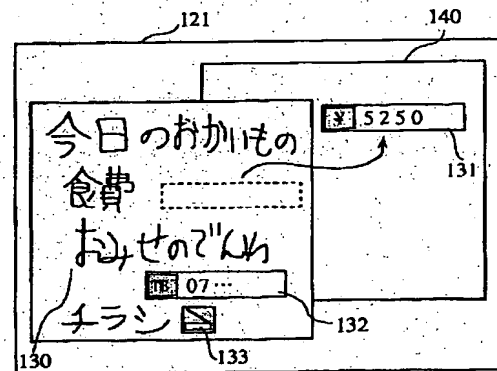 121
140
今日のおかいもの
¥ 5250
131
食費
おみせのでんわ
TEL 07…
132
チラシ
130
133